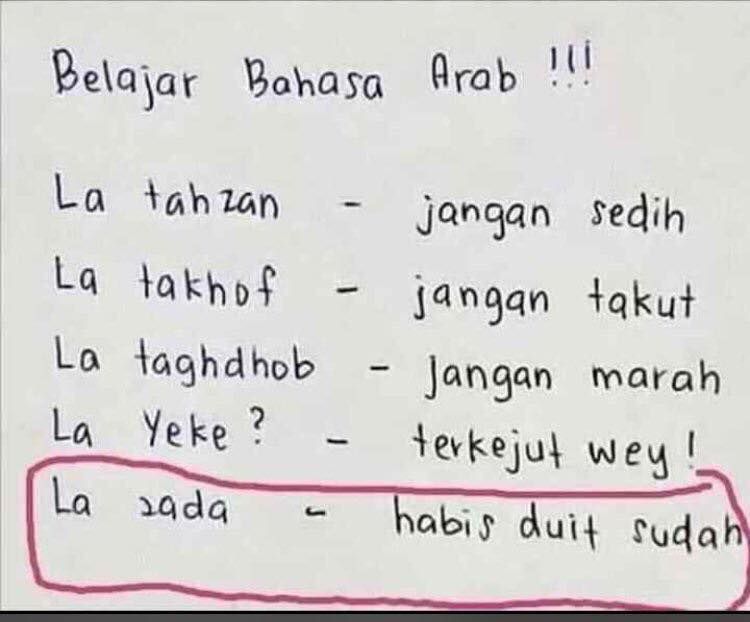 Belajar Bahasa Arab !!!
La tahzan - jangan sedih
La takhof - jangan takut
La taghdhob - jangan marah
La Yeke? - terkejut wey!
La zada - habis duit sudah